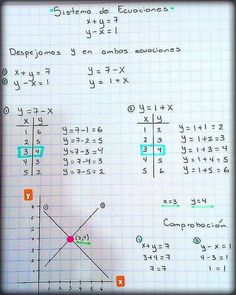 Sistema de Ecuaciones
x+y=7
y-x=1
Despejamos y en ambas ecuaciones
① x+y=7 y=7-x
② y-x=1 y=1+x
① y=7-x
x y
1 6 y=7-1=6
2 5 y=7-2=5
3 4 y=7-3=4
4 3 y=7-4=3
5 2 y=7-5=2
② y=1+x
x y
1 2 y=1+1=2
2 3 y=1+2=3
3 4 y=1+3=4
4 5 y=1+4=5
5 6 y=1+5=6
x=3 y=4
y
(3,4)
x
Comprobación
① ②
x+y=7 y-x=1
3+4=7 4-3=1
7=7 1=1